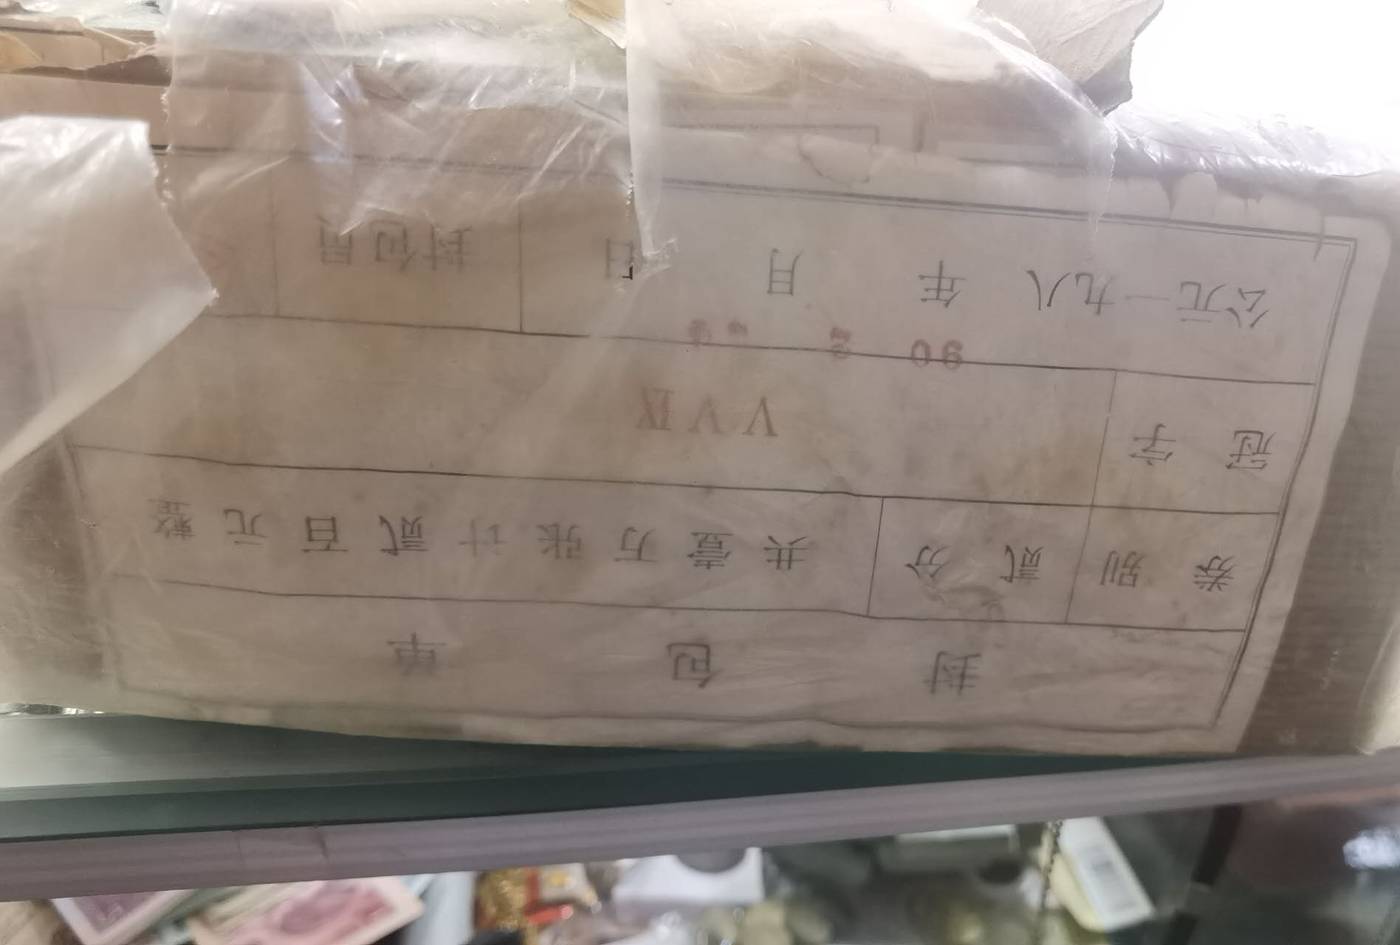 封包单
券别 贰分 共壹万张计贰百元整
冠字 V V Ⅸ
90 2
公元一九八 年 月 日 封包员